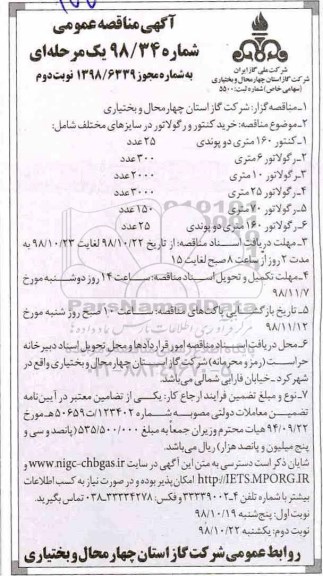 آگهی مناقصه عمومی
شماره ۹۸/۳۴ یک مرحله‌ای
به شماره مجوز ۱۳۹۸/۶۳۳۹ نوبت دوم
شرکت ملی گاز ایران
شرکت گاز استان چهارمحال و بختیاری
(سهامی خاص) شماره ثبت: ۵۵۰۰
۱ـ مناقصه گزار: شرکت گاز استان چهارمحال و بختیاری
۲ـ موضوع مناقصه: خرید کنتور و رگولاتور در سایزهای مختلف شامل:
۱ـ کنتور ۱۶۰ متری دو پوندی ۲۵ عدد
۲ـ رگولاتور ۶ متری ۳۰۰ عدد
۳ـ رگولاتور ۱۰ متری ۲۰۰۰ عدد
۴ـ رگولاتور ۲۵ متری ۳۰۰۰ عدد
۵ـ رگولاتور ۷۰ متری ۱۵۰ عدد
۶ـ رگولاتور ۱۶۰ متری دو پوندی ۲۵ عدد
۳ـ مهلت دریافت اسناد مناقصه: از تاریخ ۹۸/۱۰/۲۲ لغایت ۹۸/۱۰/۲۳ به
مدت ۲ روز از ساعت ۸ صبح لغایت ۱۵
۴ـ مهلت تکمیل و تحویل اسناد مناقصه: ساعت ۱۴ روز دوشنبه مورخ
۹۸/۱۱/۷
۵ـ تاریخ بازگشایی پاکت‌های مناقصه: ساعت ۱۰ صبح روز شنبه مورخ
۹۸/۱۱/۱۲
۶ـ محل دریافت اسناد مناقصه امور قراردادها و محل تحویل اسناد دبیرخانه
حراست (رمز و محرمانه) شرکت گاز استان چهارمحال و بختیاری واقع در
شهرکرد ـ خیابان فارابی شمالی می‌باشد.
۷ـ نوع و مبلغ تضمین فرایند ارجاع کار: یکی از تضامین معتبر در آیین‌نامه
تضمین معاملات دولتی مصوبه شماره ۱۲۳۴۰۲/ت۵۰۶۵۹هـ مورخ
۹۴/۰۹/۲۲ هیات محترم وزیران جمعاً به مبلغ ۵۳۵/۵۰۰/۰۰۰ (پانصد و سی و
پنج میلیون و پانصد هزار) ریال می‌باشد.
شایان ذکر است دسترسی به متن این آگهی در سایت www.nigc-chbgas.ir و
http://IETS.MPORG.IR امکان پذیر بوده و در صورت نیاز به کسب اطلاعات
بیشتر با شماره تلفن ۴ـ۳۳۳۳۹۰۰۲ و فکس: ۳۳۳۳۴۲۷۸ـ۰۳۸ تماس بگیرید.
نوبت اول: پنج‌شنبه ۹۸/۱۰/۱۹
نوبت دوم: یکشنبه ۹۸/۱۰/۲۲
روابط عمومی شرکت گاز استان چهارمحال و بختیاری
ParsNamadData